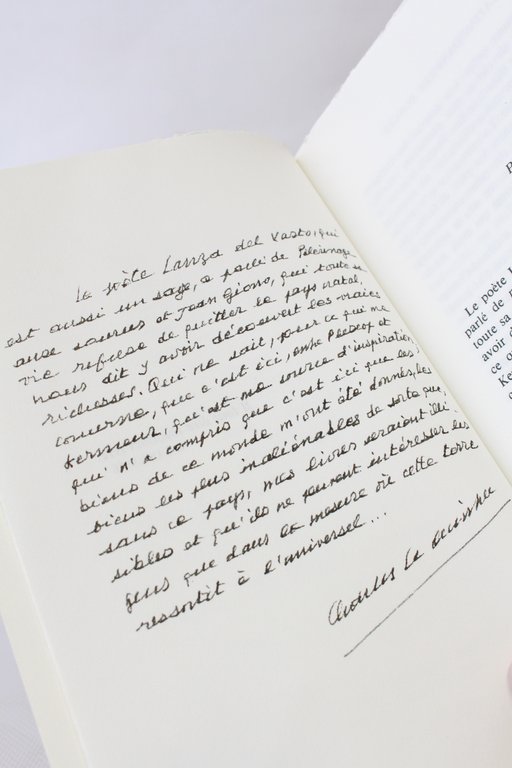 Le poète Lanza del Vasto, qui
est aussi un sage, a parlé de Pélerinage
aux sources et Jean Giono, qui toute sa
vie refuse de quitter le pays natal,
nous dit y avoir découvert les vraies
richesses. Qui ne sait, pour ce qui me
concerne, que c'est ici, entre et
Kermeur, qu'est ma source d'inspiration,
qui n'a compris que c'est ici que les
biens de ce monde m'ont été donnés, les
biens les plus inaliénables de sorte que,
sans ce pays, mes livres seraient illi-
sibles et qu'ils ne peuvent intéresser les
gens que dans la mesure où cette terre
ressortit à l'universel...
Charles Le Quintrec
Le poète
parlé de
toute sa
avoir d
ce
Ke